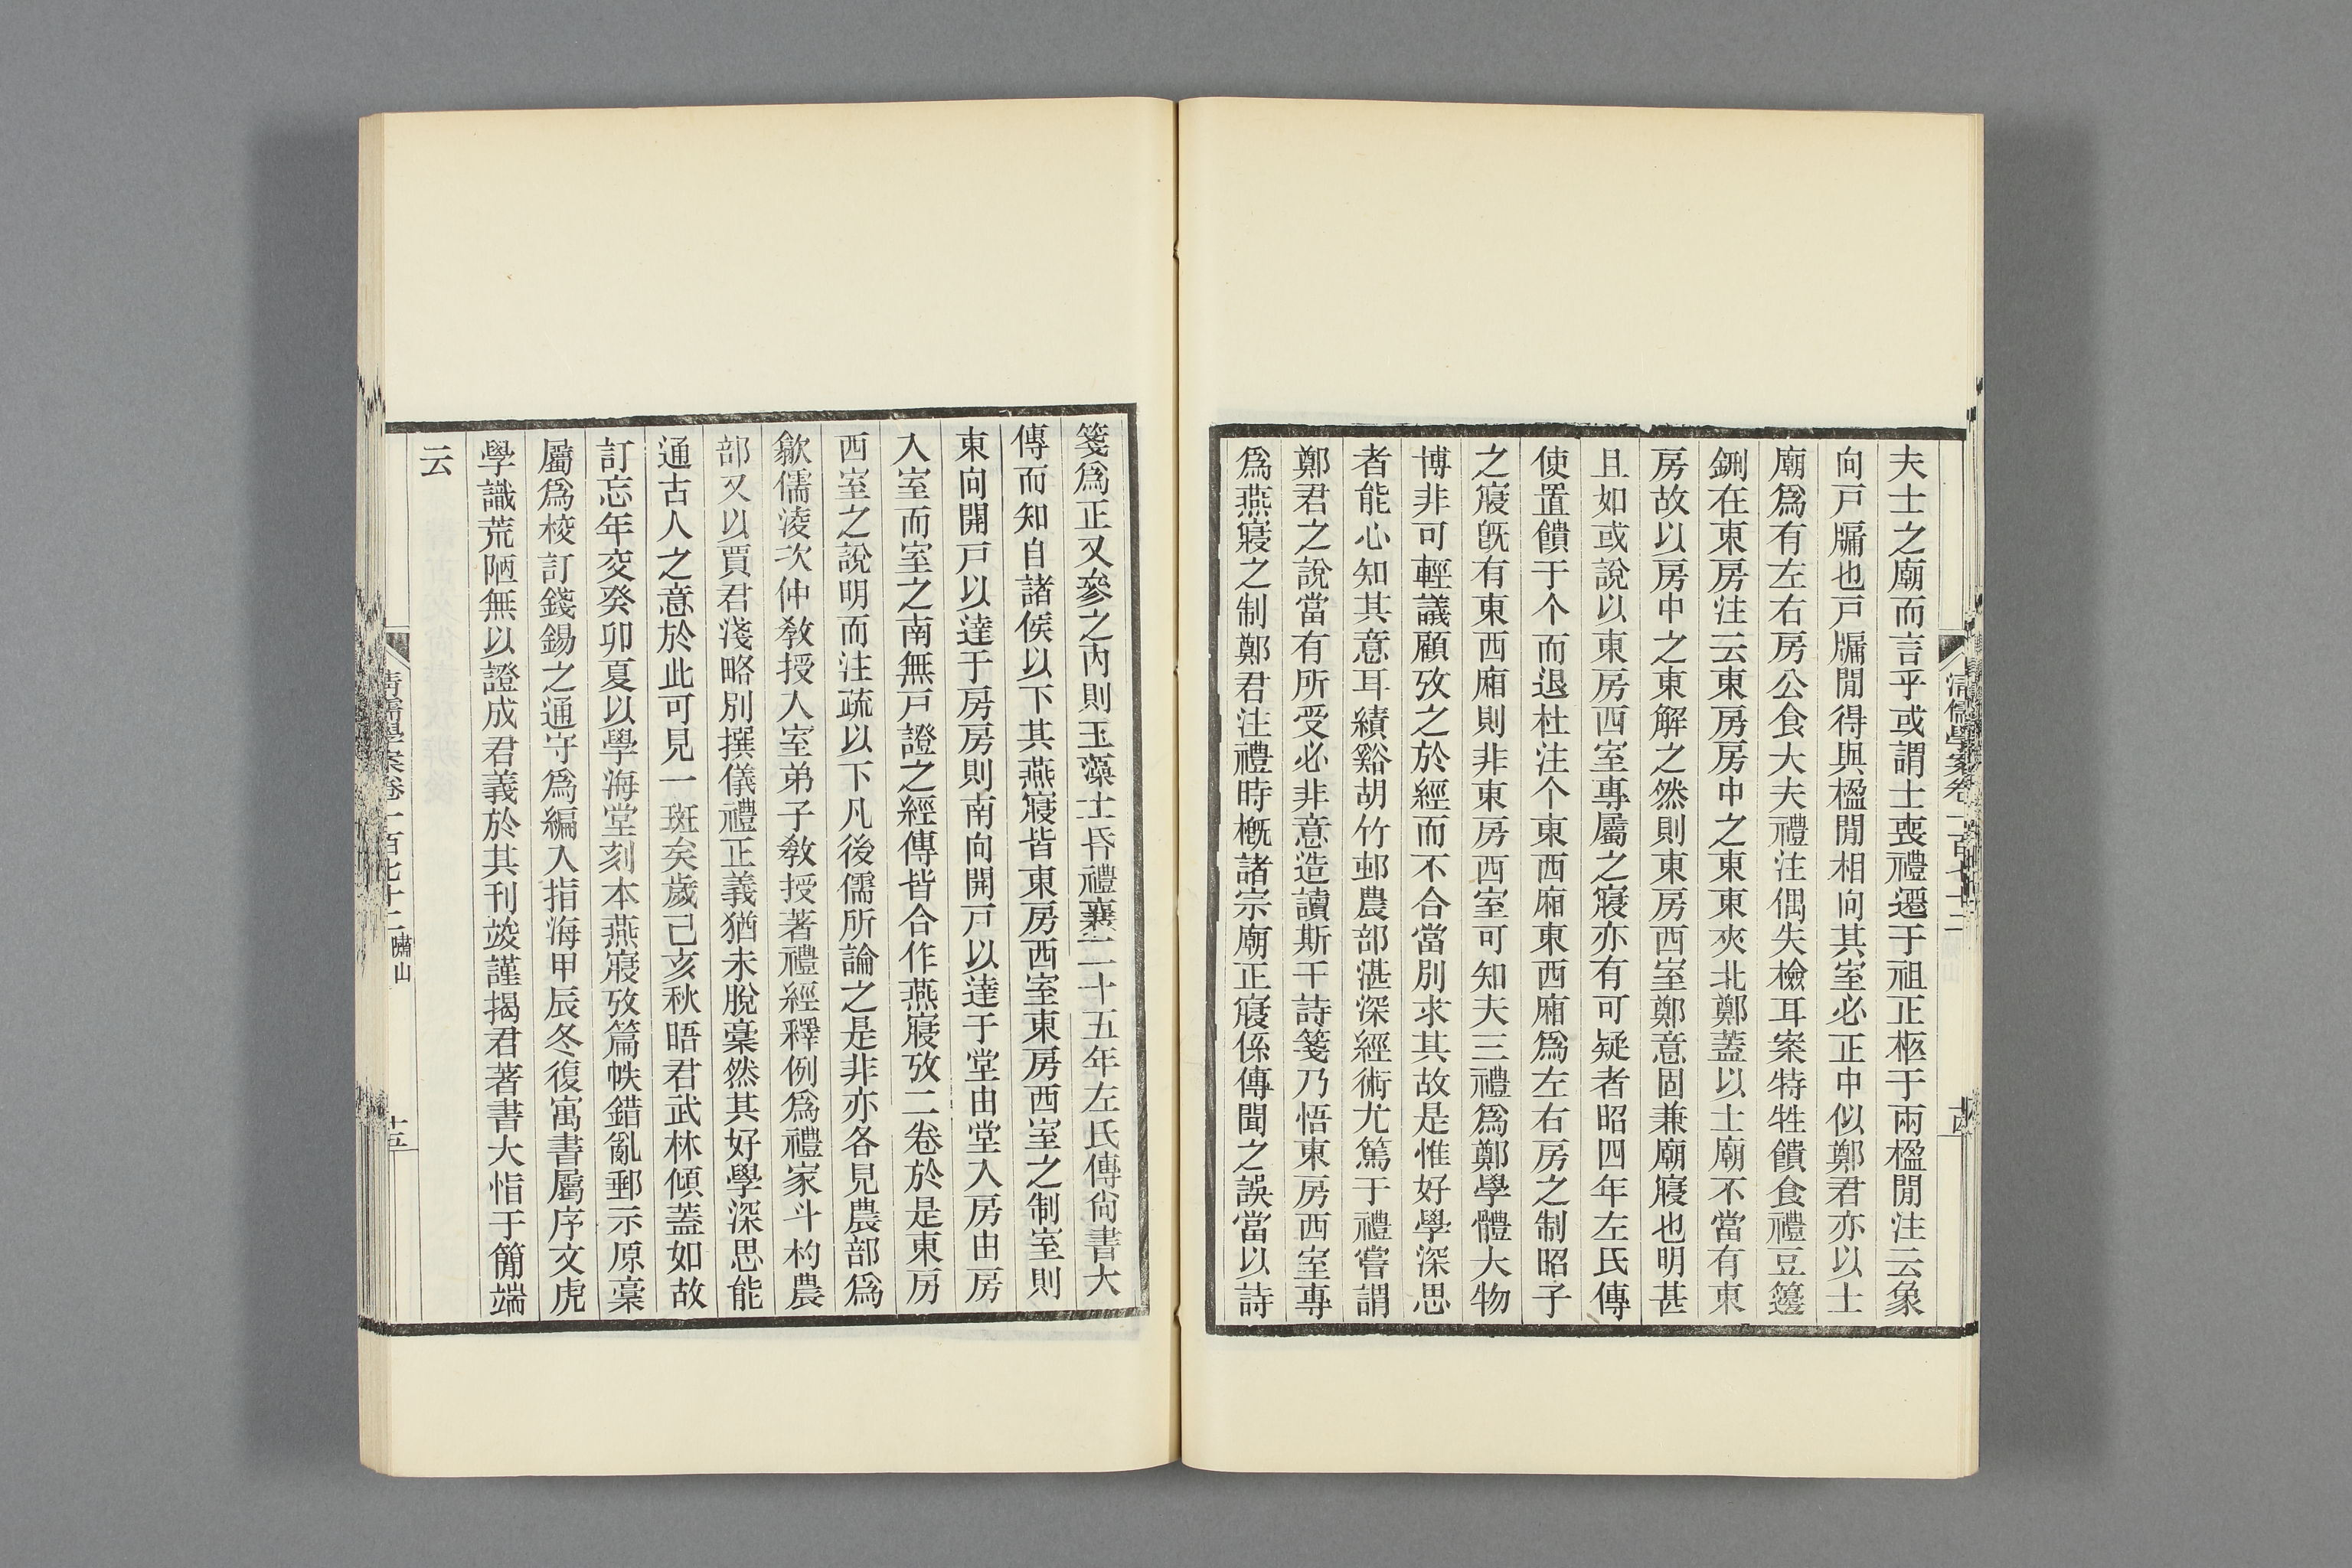 夫士之廟而言乎或謂士喪禮遷于祖正柩于兩楹閒注云象
向戸牖也戸牖閒得與楹閒相向其室必正中似鄭君亦以士
廟爲有左右房公食大夫禮注偶失檢耳案特牲饋食禮豆籩
鉶在東房注云東房房中之東東夾北鄭蓋以士廟不當有東
房故以房中之東解之然則東房西室鄭意固兼廟寢也明甚
且如或說以東房西室專屬之寢亦有可疑者昭四年左氏傳
使置饋于个而退杜注个東西廂東西廂爲左右房之制昭子
之寢旣有東西廂則非東房西室可知夫三禮爲鄭學體大物
博非可輕議顧攷之於經而不合當別求其故是惟好學深思
者能心知其意耳績谿胡竹邨農部湛深經術尤篤于禮嘗謂
鄭君之說當有所受必非意造讀斯干詩箋乃悟東房西室專
爲燕寢之制鄭君注禮時槪諸宗廟正寢係傳聞之誤當以詩
清儒學案卷一百七十二
十四
箋爲正又參之內則玉藻士昏禮襄二十五年左氏傳尙書大
傳而知自諸侯以下其燕寢皆東房西室東房西室之制室則
東向開戸以達于房房則南向開戸以達于堂由堂入房由房
入室而室之南無戸證之經傳皆合作燕寢攷二卷於是東房
西室之說明而注疏以下凡後儒所論之是非亦各見農部爲
歙儒淩次仲敎授入室弟子敎授著禮經釋例爲禮家斗杓農
部又以賈君淺略別撰儀禮正義猶未脫稾然其好學深思能
通古人之意於此可見一斑矣歲己亥秋晤君武林傾蓋如故
訂忘年交癸卯夏以學海堂刻本燕寢攷篇帙錯亂郵示原稾
屬爲校訂錢錫之通守爲編入指海甲辰冬復寓書屬序文虎
學識荒陋無以證成君義於其刊竣謹揭君著書大恉于簡端
云
清儒學案卷一百七十二 嘯山
十五